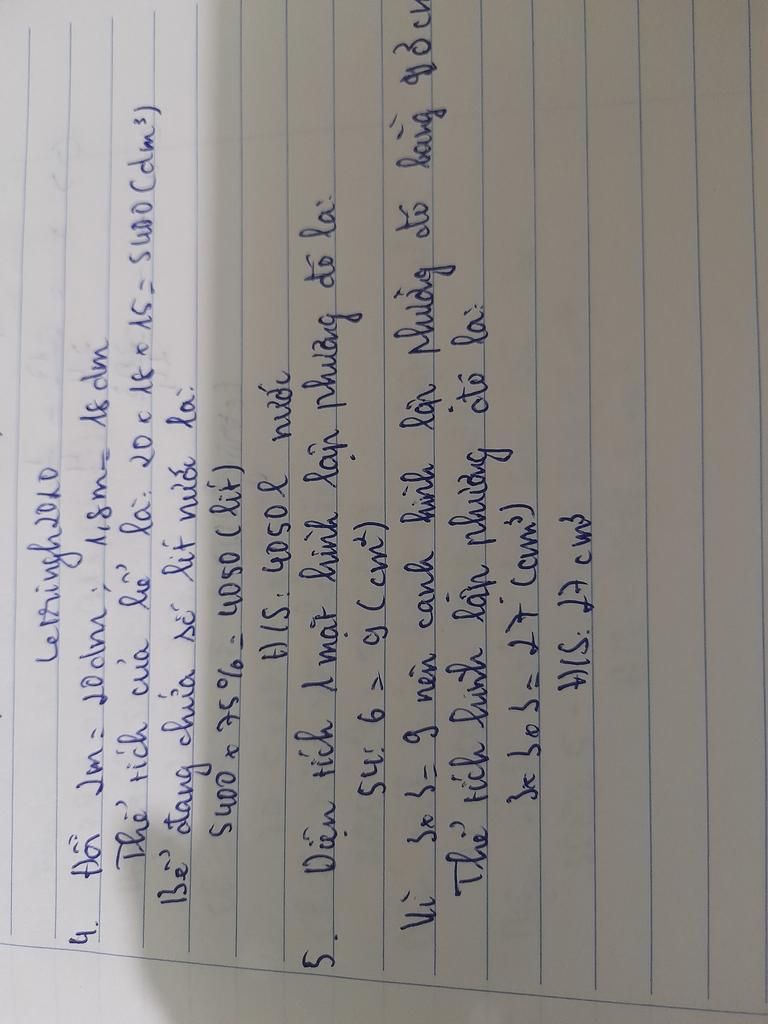 letzingh2010
4. Đổi 2m = 20dm; 1,8m = 18dm
Thể tích của bể là: 20 x 18 x 15 = 5400 (dm³)
Bể đang chứa số lít nước là:
5400 x 75% = 4050 (lít)
Đ/S: 4050l nước
5. Diện tích 1 mặt hình lập phương đó là:
54 : 6 = 9 (cm²)
Vì 3x3 = 9 nên cạnh hình lập phương đó bằng
Thể tích hình lập phương đó là:
3x3x3 = 27 (cm³)
Đ/S: 27 cm³